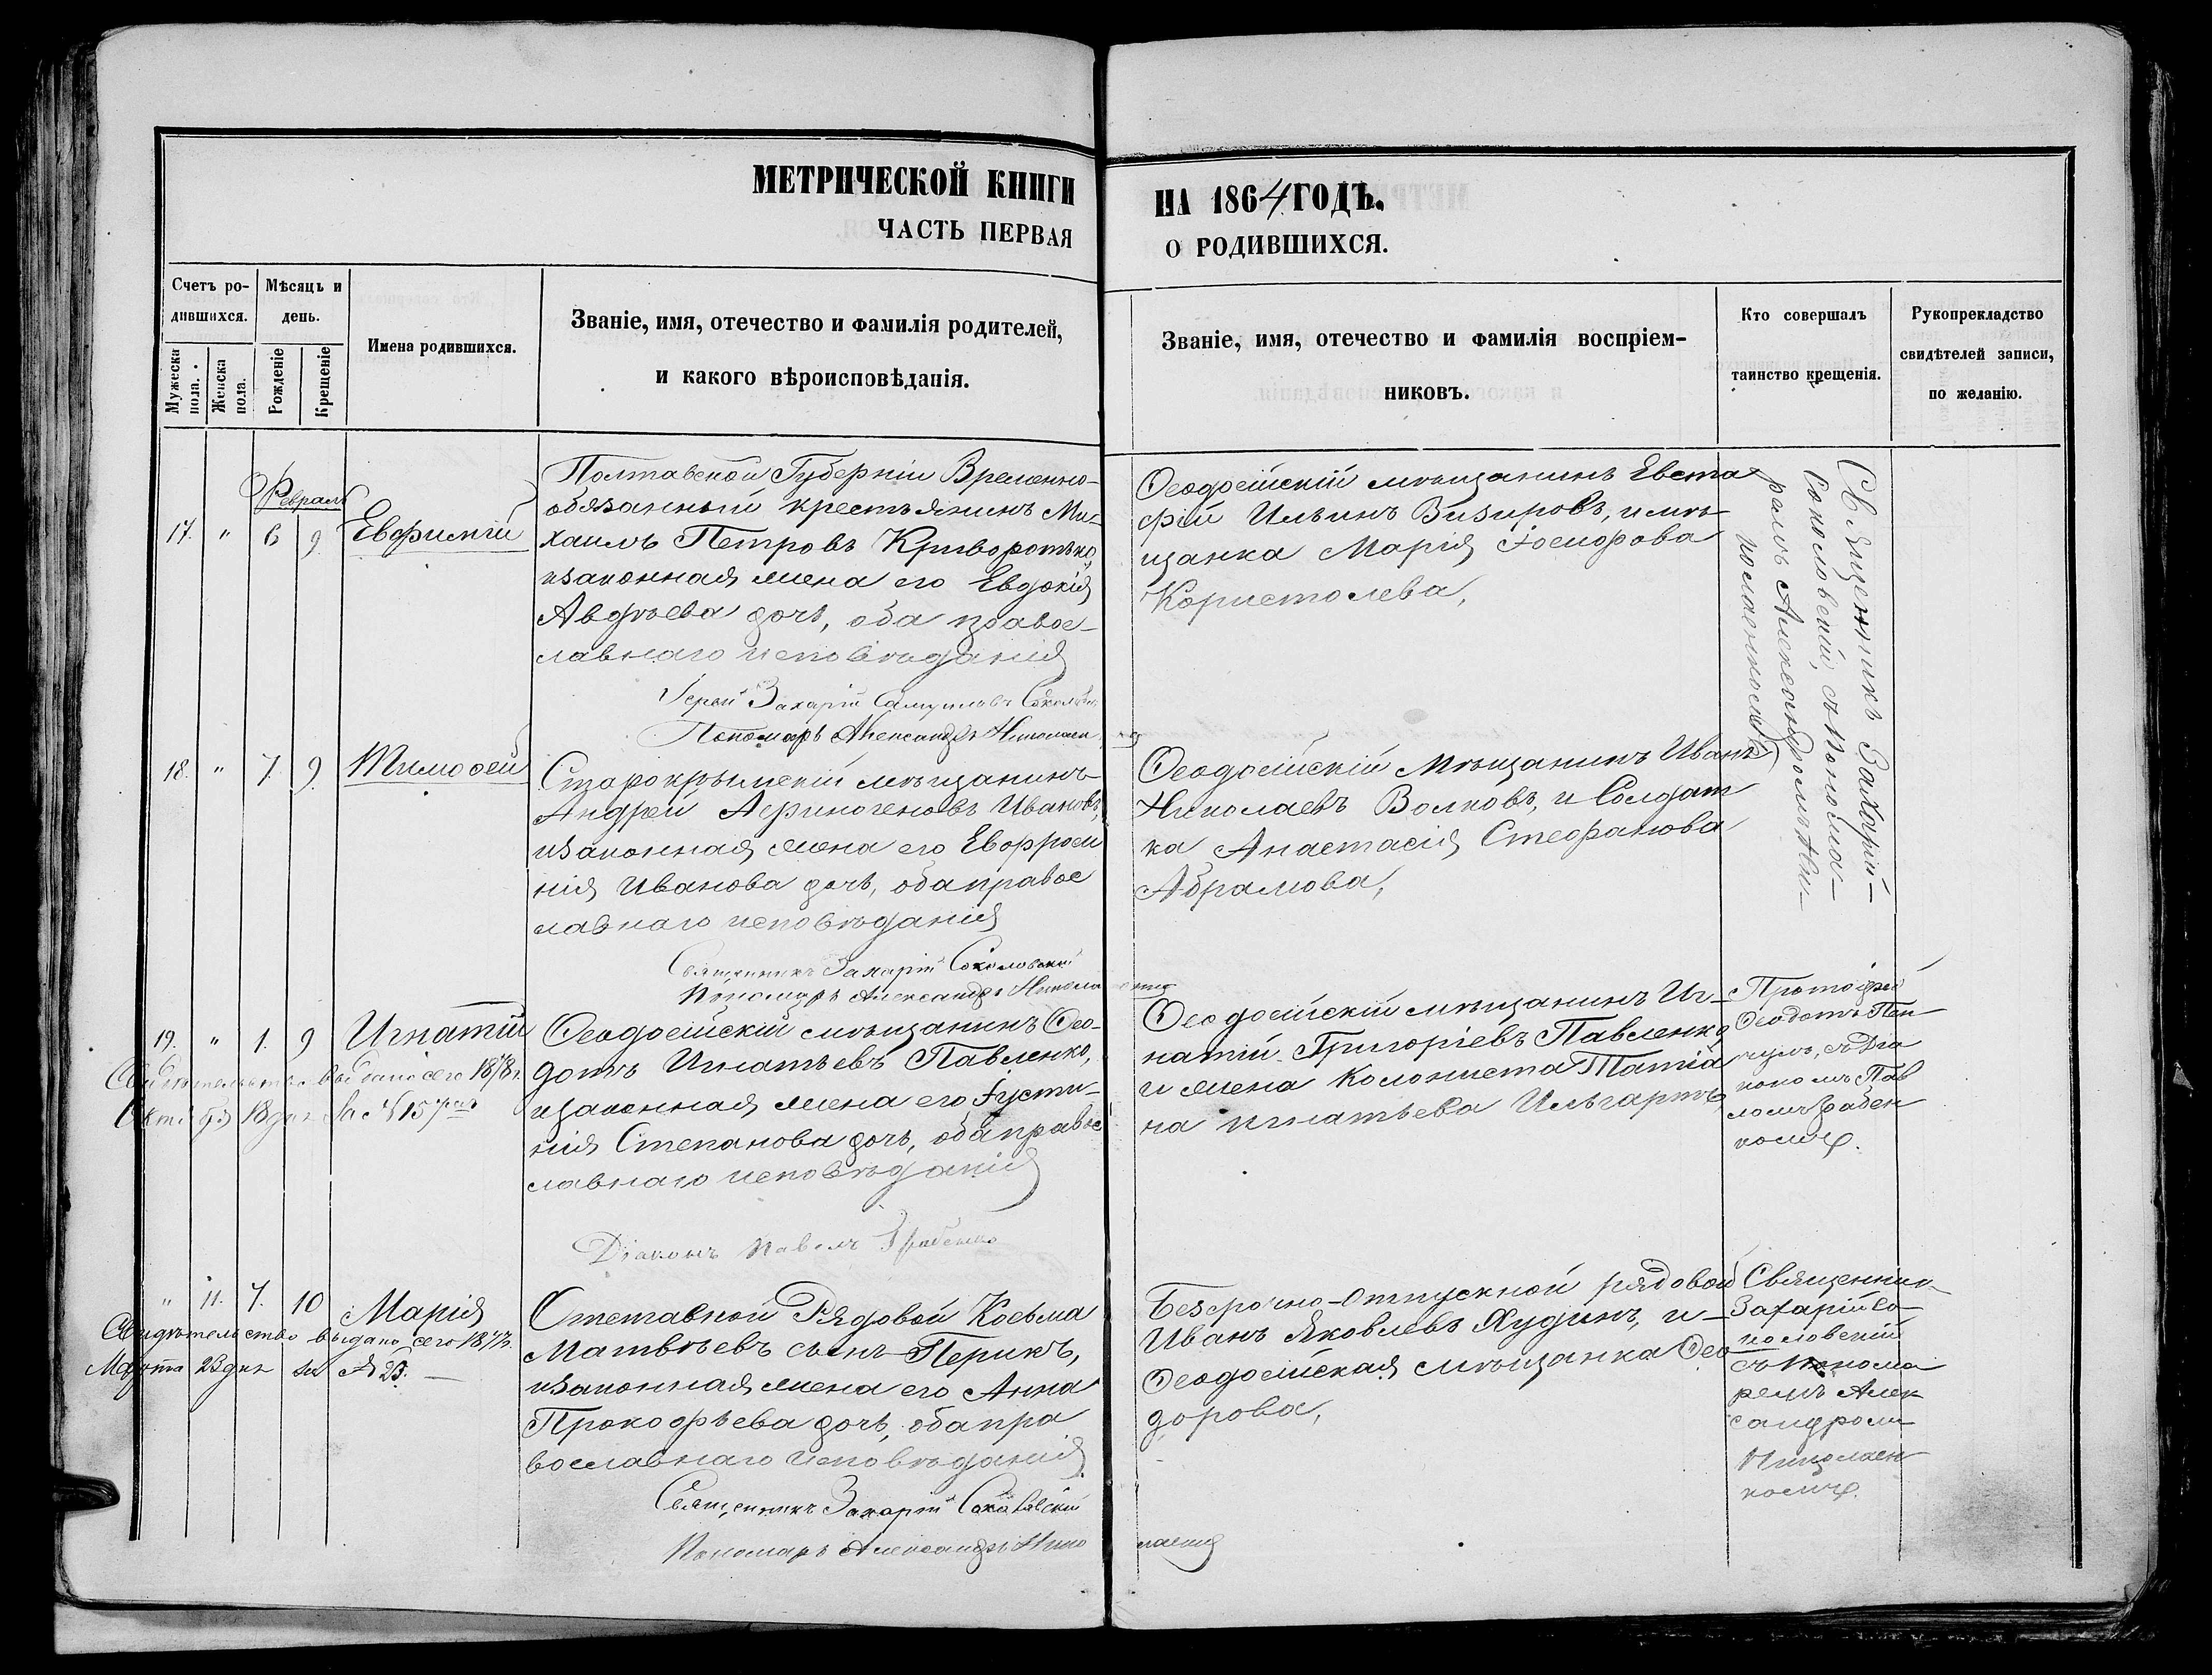 МЕТРИЧЕСКОЙ КНИГИ
ЧАСТЬ ПЕРВАЯ
НА 1864 ГОДЪ.
О РОДИВШИХСЯ.
Счетъ ро-
дившихся.
Мѣсяць и
день.
Мужеска
пола.
Женска
пола.
Рожденіе
Крещеніе
Имена родившихся.
Званіе, имя, отечество и фамилія родителей,
и какого вѣроисповѣданія.
Званіе, имя, отечество и фамилія воспріем-
никовъ.
Кто совершалъ
таинство крещенія.
Рукопрекладство
свидѣтелей записи,
по желанію.
Февраль
17. " 6 9 Евфимій
Полтавской Губерніи Временно-
обязанный крестьянинъ Ми-
хаилъ Петровъ Криворотько,
изаконная жена его Евдокія
Авдѣева дочь, оба правос-
лавнаго исповѣданія
Іерей Захарій Самуиловъ
Пономарь Александръ
Ѳеодосійскій мѣщанинъ Евста
фій Ильинъ Визировъ, и мѣ-
щанка Марія Іосифова
Священникъ Захарій
Соколовскій, съ Понома-
ремъ Александромъ Ни-
колаенкомъ
18. " 7. 9. Тимофей
Старокрымскій мѣщанинъ
Андрей Афиногеновъ Ивановъ,
изаконная жена его Евфроси
нія Иванова дочь, оба правос
лавнаго исповѣданія
Священникъ Захарій Соколовскій
Пономарь Александръ Николаенко
Ѳеодосійскій Мѣщанинъ Иванъ
Николаевъ Волковъ, и Солдат
ка Анастасія Стефанова
Абрамова,
19. " 1. 9 Игнатій
Свидѣтельство выдано сего 1878 г.
Октября 18 дня за №15
Ѳеодосійскій мѣщанинъ Ѳео-
дотъ Игнатьевъ Павленко,
изаконная жена его Іусти-
нія Степанова дочь, оба правос
лавнаго исповѣданія
Діаконъ Павелъ Грабенко
Ѳеодосійскій мѣщанинъ Иг-
натій Григоріевъ Павленко
и жена колониста Татіа
на Игнатьева
Протоіерей
Ѳеодотъ
съ Діа
кономъ Пав
ломъ Грабен
комъ.
" 11. 7. 10 Марія
Свидѣтельство выдано сего
Марта 23 дня за № 23.
Отставной Рядовой Косьма
Матвѣевъ сынъ Перикъ,
изаконная жена его Анна
Прокофьева дочь, оба пра
вославнаго исповѣданія
Священникъ Захарій Соколовскій
Пономарь Александръ Николаенко
Безсрочно-отпускной рядовой
Иванъ Яковлевъ Худинъ, и
Ѳеодосійская мѣщанка Ѳео
дорова,
Священник
Захарій Со-
коловскій
съ Понома
ремъ Алек
сандромъ
Николаен
комъ.